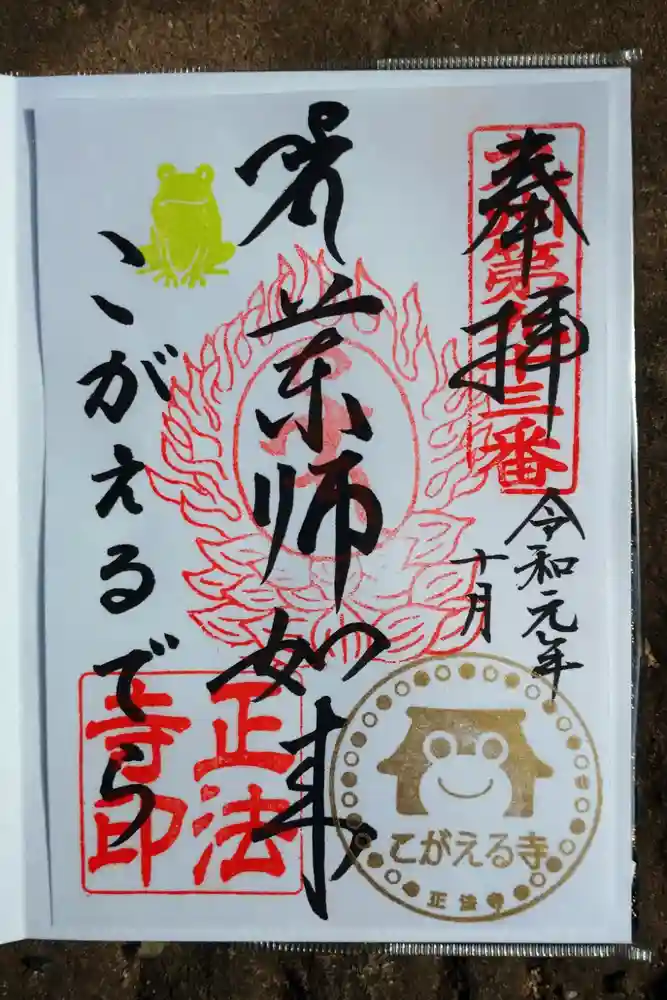 奉拝
十三番
令和元年
十月
薬師如来
こがえるでら
正法
寺印
こがえる寺
正法寺